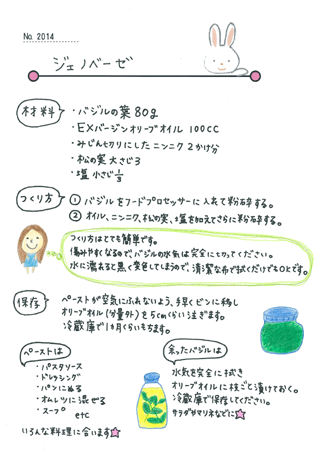 No. 2014
ジェノベーゼ
材料
・バジルの葉 80g
・EXバージンオリーブオイル 100CC
・みじん切りにしたニンニク 2かけ分
・松の実 大さじ3
・塩 小さじ1/3
つくり方
① バジルをフードプロセッサーに入れて粉砕する。
② オイル、ニンニク、松の実、塩を加えてさらに粉砕する。
つくり方はとても簡単です。
傷みやすくなるので、バジルの水気は完全に切ってください。
水に濡れると黒く変色してしまうので、清潔な布で拭くだけでもOKです。
保存
ペーストが空気にふれないよう、手早くビンに移し
オリーブオイル(分量外)を5cmくらい注ぎます。
冷蔵庫で1カ月くらいもちます。
ペーストは
・パスタソース
・ドレッシング
・パンにぬる
・オムレツに混ぜる
・スープ
etc
いろんな料理に合います
余ったバジルは
水気を完全に拭き
オリーブオイルに枝ごと漬けておく。
冷蔵庫で保存してください。
サラダやマリネなどに